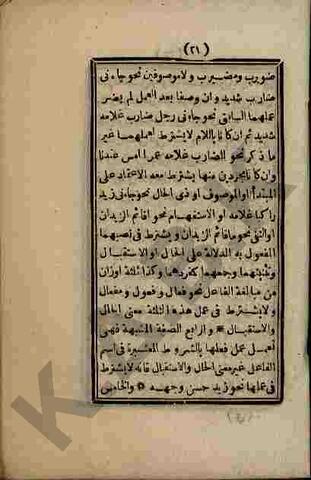 (٢١)
ضويرب ومضيرب ولا موصوفين نحو جاءنى
ضارب شديد وان وصفا بعد العمل لم يضر
عملهما السابق نحو جاءنى رجل ضارب غلامه
شديد ثم ان كانا باللام لا يشترط لعملهما غير
ما ذكر نحو الضارب غلامه عمرا امس عندنا
وان كانا مجردين منها يشترط معه الاعتماد على
المبتدأ او الموصوف او ذى الحال نحو جاءنى زيد
راكبا غلامه او الاستفهام نحو اقائم الزيدان
او النفى نحو ما قائم الزيدان ويشترط فى نصبهما
المفعول به الدلالة على الحال او الاستقبال
وتثنيتهما وجمعهما كمفردهما وكذا ثلثة اوزان
من مبالغة الفاعل نحو فعال وفعول ومفعال
ولا يشترط فى عمل هذه الثلثة معنى الحال
والاستقبال والرابع الصفة المشبهة فهى
تعمل عمل فعلها بالشروط المعتبرة فى اسم
الفاعل غير معنى الحال والاستقبال فانه لا يشترط
فى عملها نحو زيد حسن وجهه والخامس